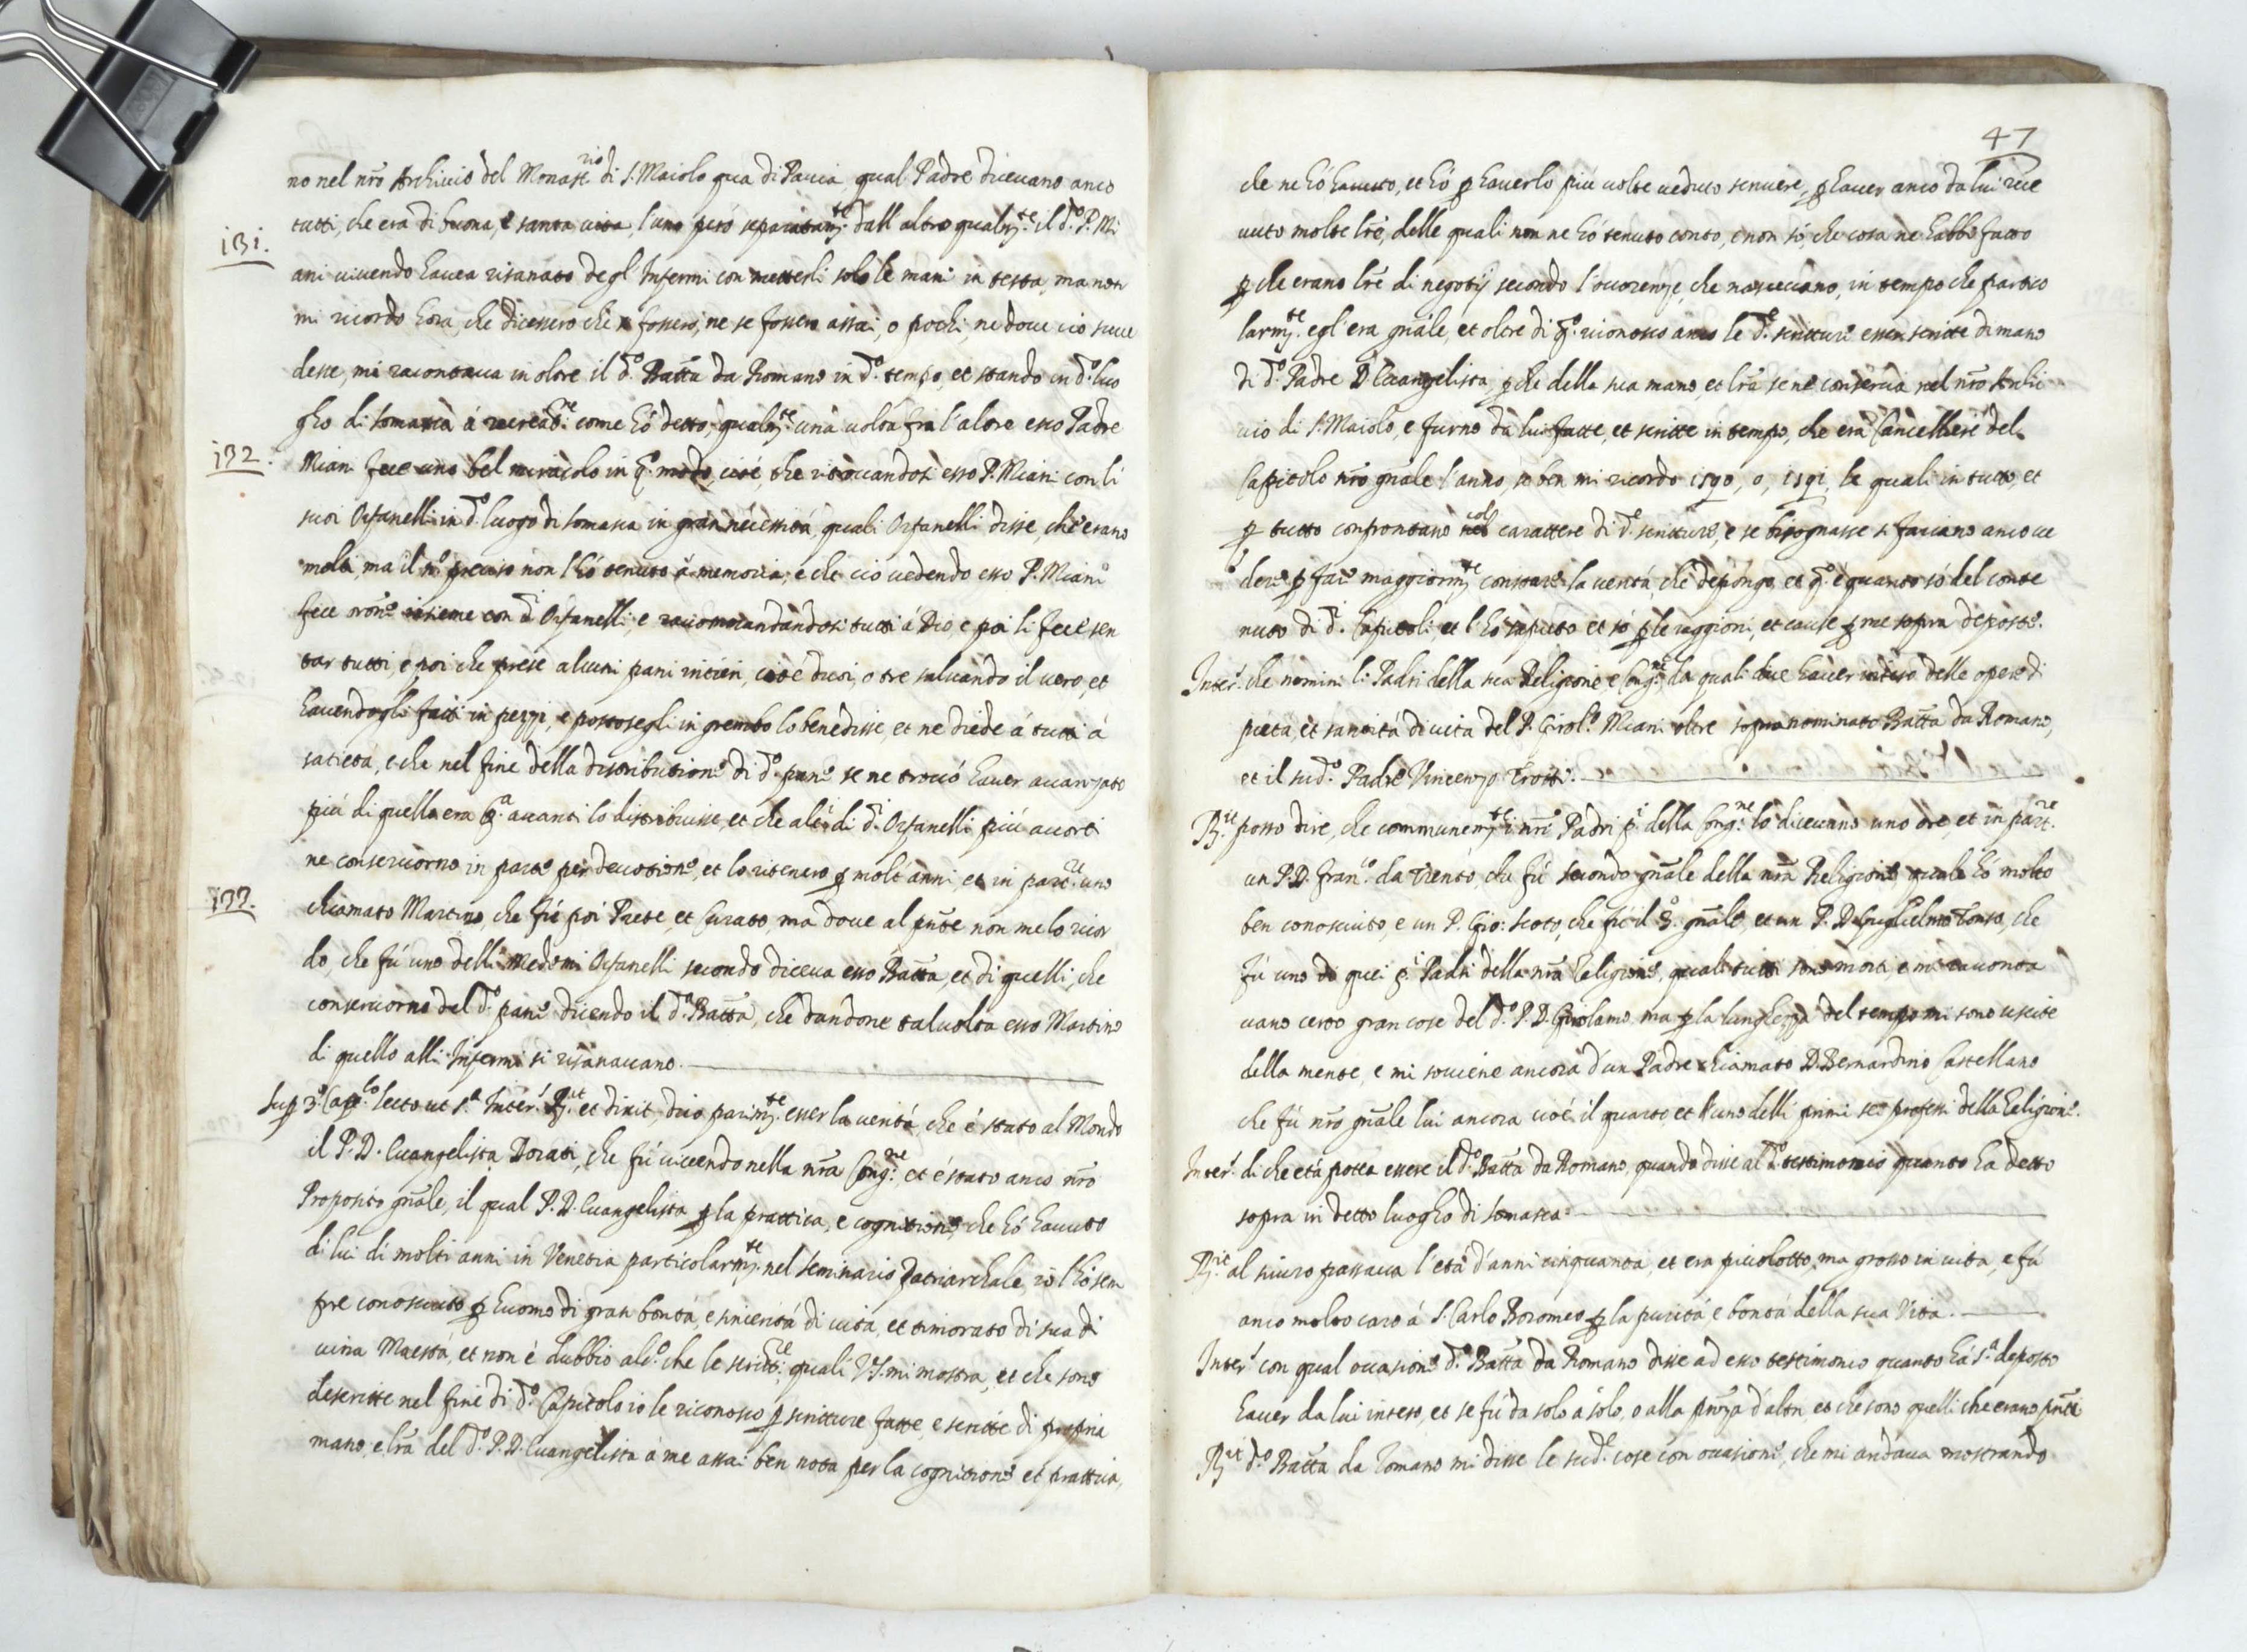 no nel nr̃o Archivio del Monast.rio di S. Maiolo qua di Pavia, qual Padre dicevano anco
131.
tutti, che era di buona, e santa vita, l'uno però separatam.te dall'altro qualm.te il d.o P. Mi
ani vivendo havea risanato degl'Infermi con metterli solo le mani in testa, ma non
mi ricordo hora, che dicessero chi fossero, ne se fossero assai, o pochi, ne dove ciò succe
desse, mi racontava in oltre il d.o Batt̃a da Romano in d.o tempo, et stando in d.o luo
gho di Somasca à recreat.ne come hò detto, qualm.te una volta fra l'altre esso Padre
132.
Miani fece uno bel miracolo in q.o modo, cioè, che ritrovandosi esso P. Miani con li
suoi Orfanelli in d.o luogo di Somasca in gran necessità, quali Orfanelli disse che erano
molti, ma il n.o preciso non l'hò tenuto à memoria, e che ciò vedendo esso P. Miani
fece oron.e insieme con d.i Orfanelli, e raccomandandosi tutti à Dio, e poi li fece sen
tar tutti, e poi che prese alcuni pani intieri, cioè duoi, o tre salvando il vero, et
havendogli fatti in pezzi, e postosegli in grembo lo benedisse, et ne diede à tutti à
satietà, e che nel fine della distribution.e di d.o pan.e se ne trovò haver avanzato
più di quello era p.a avanti lo distribuisse, et che alc.i di d.i Orfanelli più accorti
ne conservorno in part.e per devotion.e, et lo ritenero ꝑ molt'anni, et in part.re uno
133.
chiamato Martino, che fù poi Prete, et Curato, ma dove al pn̄te non me lo ricor
do, che fù uno delli medemi Orfanelli secondo diceva esso Batt̃a, et di quelli, che
conservorno del d.o pan.e dicendo il d.o Batt̃a, che dandone talvolta esso Martino
di quello alli Infermi si risanavano.
Suꝑ 3.o Cap.lo lecto ut s.a Inter.s R.it et dixit, dico parim.te esser la verità, che è stato al Mondo
il P. D. Evangelista Dorati, che fù vivendo nella nr̃a Cong.ne, et è stato anco nr̃o
Proposito gñale, il qual P. D. Evangelista ꝑ la prattica, e cognition.e che hò havuto
di lui di molti anni in Venetia particolarm.te nel Seminario Patriarchale, io l'hò sem
pre conosciuto ꝑ huomo di gran bontà, e sincerità di vita, et timorato di sua di
vina Maestà, et non è dubbio alc.o che le scritt.re quali V.S. mi mostra, et che sono
descritte nel fine di d.o Capitolo io le riconosco ꝑ scritture fatte, e scritte di propria
mano, e lr̃a del d.o P. D. Evangelista à me assai ben nota per la cognition.e et prattica,
47
che ne hò havuto, et hò ꝑ haverlo più volte veduto scrivere, ꝑ haver anco da lui rice
vuto molte lr̃e, delle quali non ne hò tenuto conto, e non sò, che cosa ne habbi fatto
ꝑche erano lr̃e di negotij secondo l'occorenze, che nascevano, in tempo che partico
larm.te egl'era gñale, et oltre di q.o riconosco anco le d.e scritture esser scritte di mano
di d.o Padre D. Evangelista, ꝑche della sua mano, et lr̃a se ne conserva nel nr̃o Archi
vio di S. Maiolo, e furno da lui fatte, et scritte in tempo, che era Cancellere del
Capitolo nr̃o gñale l'anno, se ben mi ricordo 1590, o, 1591, le quali in tutto, et
ꝑ tutto confrontano col carattere di d.e scritture, e se bisognasse si faciano anco ve
dere ꝑ far.e maggiorm.te constar.e la verità, che depongo, et q.o è quanto sò del conte
nuto di d.i Capitoli et l'hò saputo et sò ꝑ le raggioni, et cause ꝑ me sopra deposte.
Inter.s che nomini li Padri della sua Religione e Cong.ne da quali dice haver inteso delle opere di
pietà, et santità di vita del P. Girol.o Miani oltre sopranominato Batt̃a da Romano,
et il sud.o Padre Vincenzo Trotti.
R.it posso dire, che communem.te i nr̃i Padri p.i della Cong.ne lo dicevano uno ore, et in part.re
un P. D. Fran.co da Trento, che fù secondo gñale della nr̃a Religion.e quale hò molto
ben conosciuto, e un P. Gio: Scoto, che fù il 3.o gñale, et un P. D. Guglielmo Tonso, che
fù uno di quei p.i Padri della nr̃a Religion.e, quali tutti sono morti, e mi raconta
vano certo gran cose del d.o P. D. Girolamo, ma ꝑ la lunghezza del tempo mi sono uscite
della mente, e mi soviene ancora d'un Padre chiamato D. Bernardino Castellano
che fù nr̃o gñale lui ancora cioè il quarto, et uno delli primi sei professi della Religion.e.
Inter.s di che età potea essere il d.o Batt̃a da Romano, quando disse al d.o testimonio quanto ha detto
sopra in detto luogho di Somasca.
R.it al sicuro passava l'età d'anni cinquanta, et era piccolotto, ma grosso in vita, e fù
anco molto caro à S. Carlo Boromeo ꝑ la purità e bontà della sua Vita.
Inter.s con qual occasion.e d.o Batt̃a da Romano disse ad esso testimonio quanto hà s.a deposto
haver da lui inteso, et se fù da solo à solo, o alla pñza d'altri, et che sono quelli che erano pñti
R.it d.o Batt̃a da Romano mi disse le sud.e cose con occasion.e, che mi andava mostrando